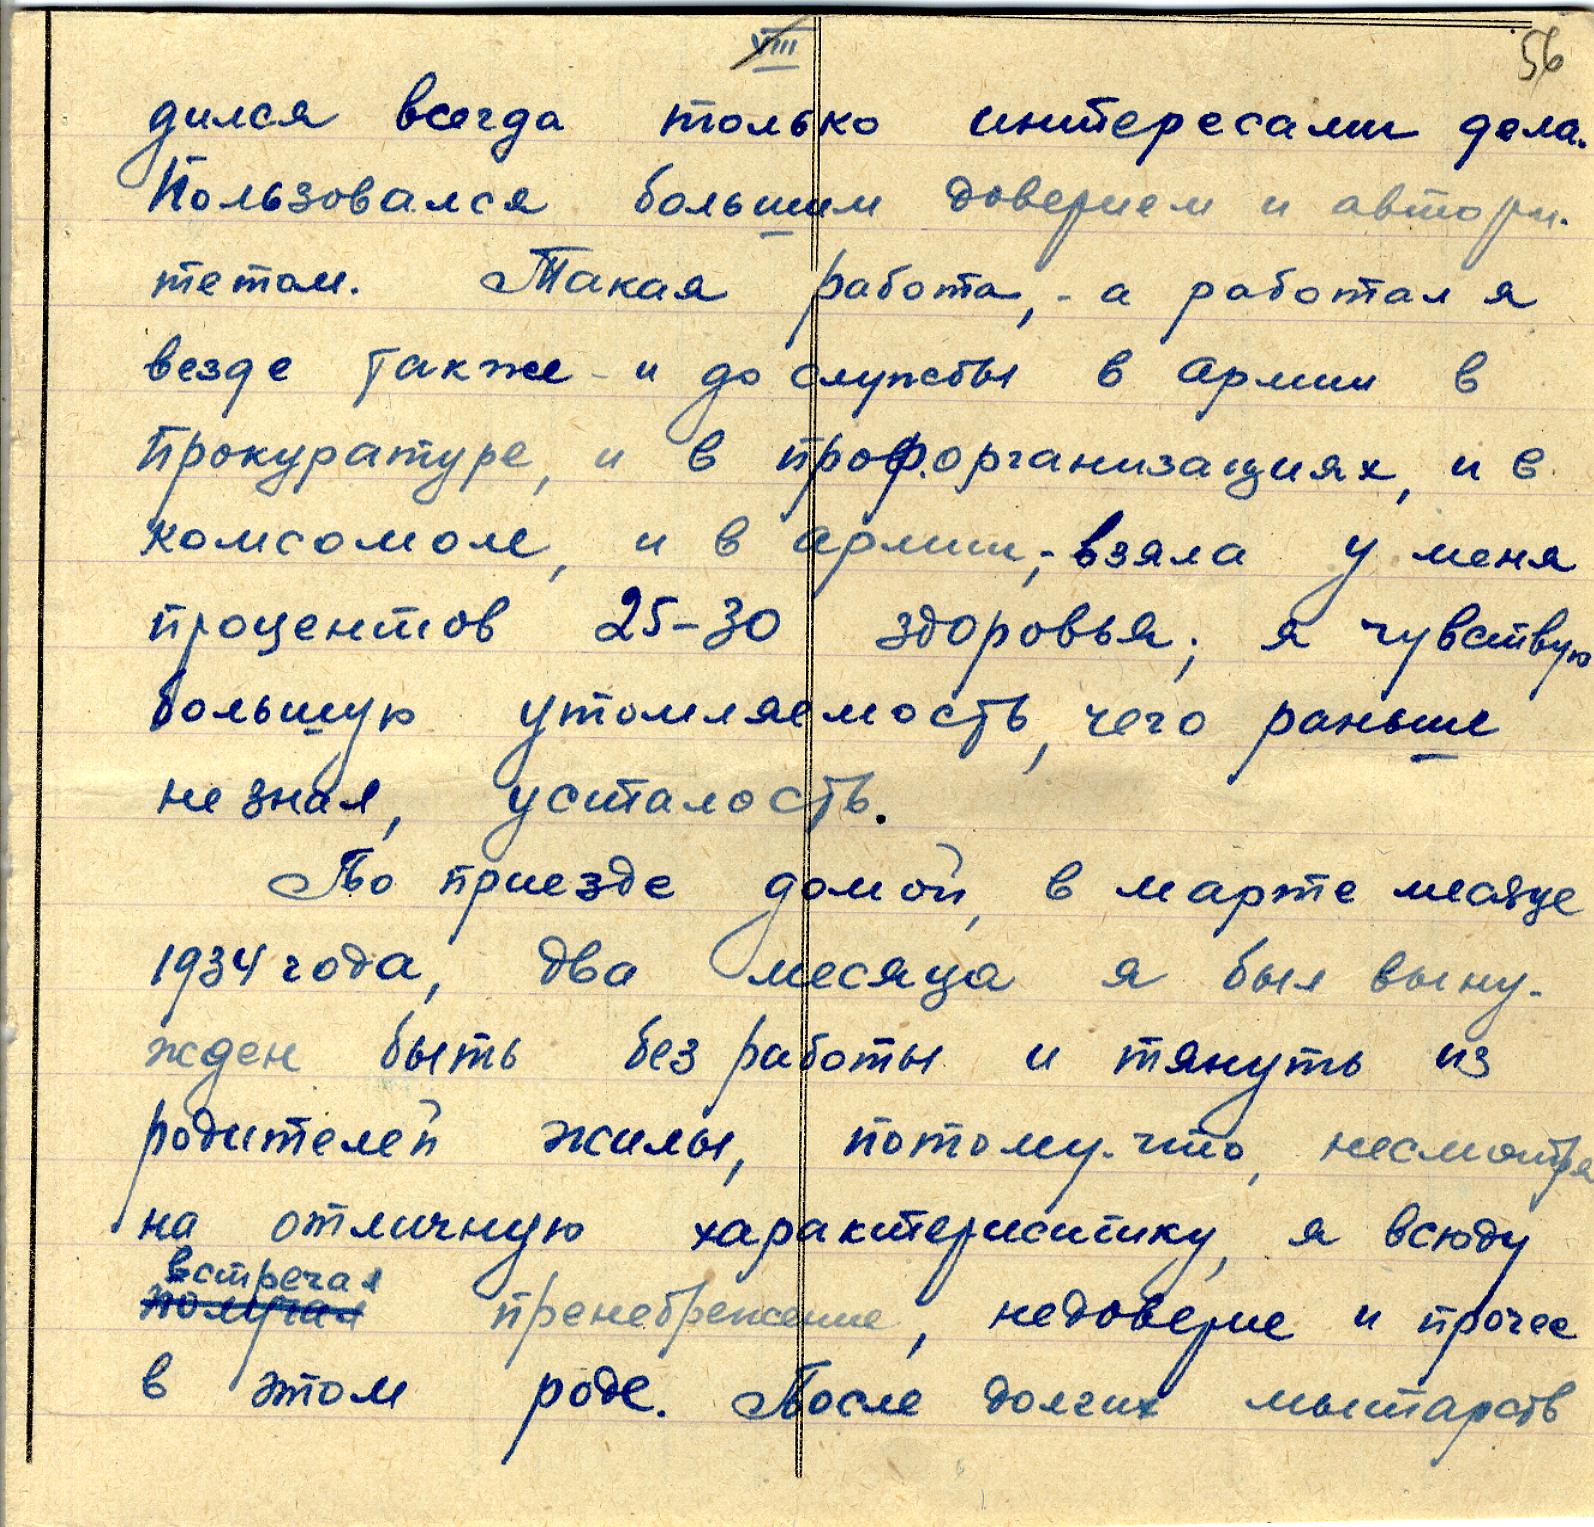 VIII
56
дился всегда только интересами дела.
Пользовался большим доверием и автори-
тетом. Такая работа, - а работал я
везде также и до службы в армии в
прокуратуре, и в проф.организациях, и в
комсомоле, и в армии, - взяла у меня
процентов 25-30 здоровья; я чувствую
большую утомляемость, чего раньше
не знал, усталость.
По приезде домой, в марте месяце
1934 года, два месяца я был выну-
жден быть без работы и тянуть из
родителей жилы, потому-что, несмотря
на отличную характеристику, я всюду
встречал
получал пренебрежение, недоверие и прочее
в этом роде. После долгих мытарств